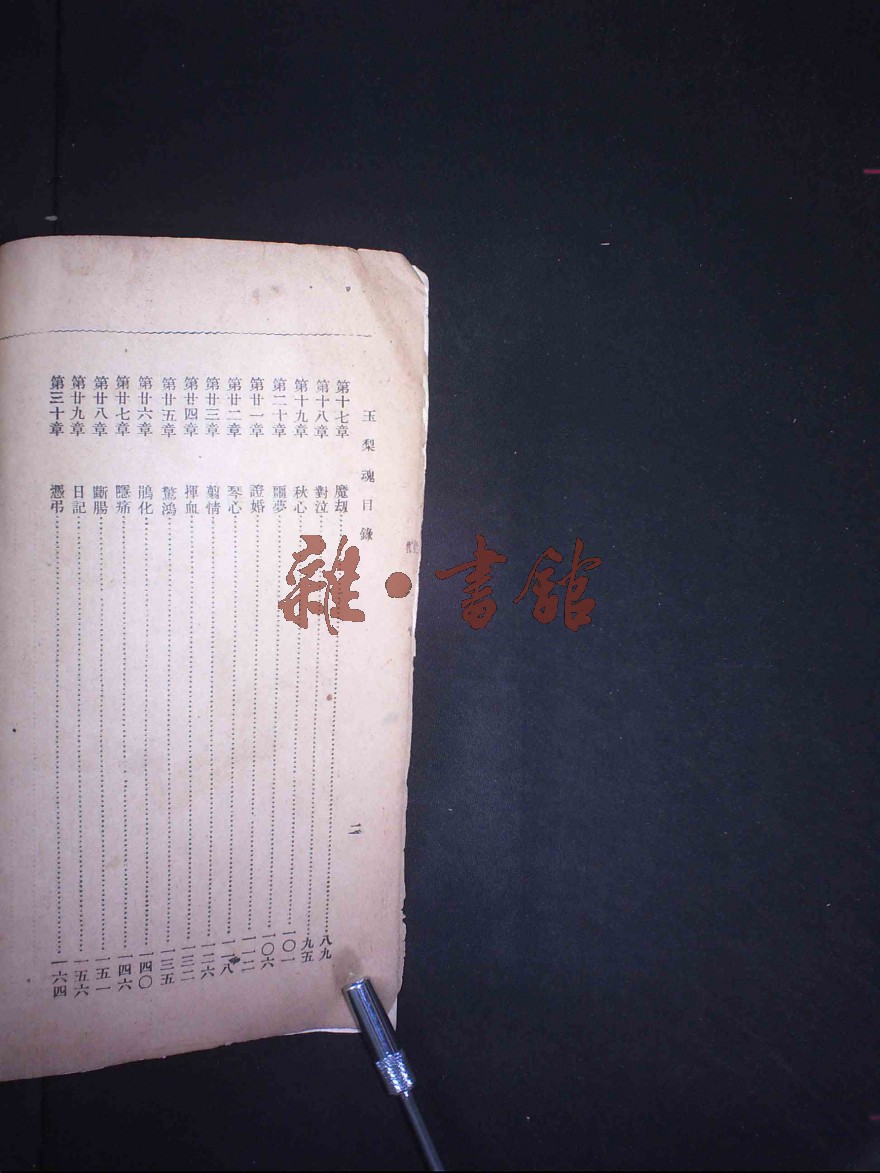 玉梨魂目錄
二
第十七章 魔劫……八九
第十八章 對泣……九五
第十九章 秋心……一〇一
第二十章 噩夢……一〇六
第廿一章 證婚……一一二
第廿二章 琴心……一一八
第廿三章 剪情……一二六
第廿四章 揮血……一三二
第廿五章 驚鴻……一三五
第廿六章 鵑化……一四〇
第廿七章 隱痛……一四六
第廿八章 斷腸……一五一
第廿九章 日記……一五六
第三十章 憑弔……一六四
雜·書館